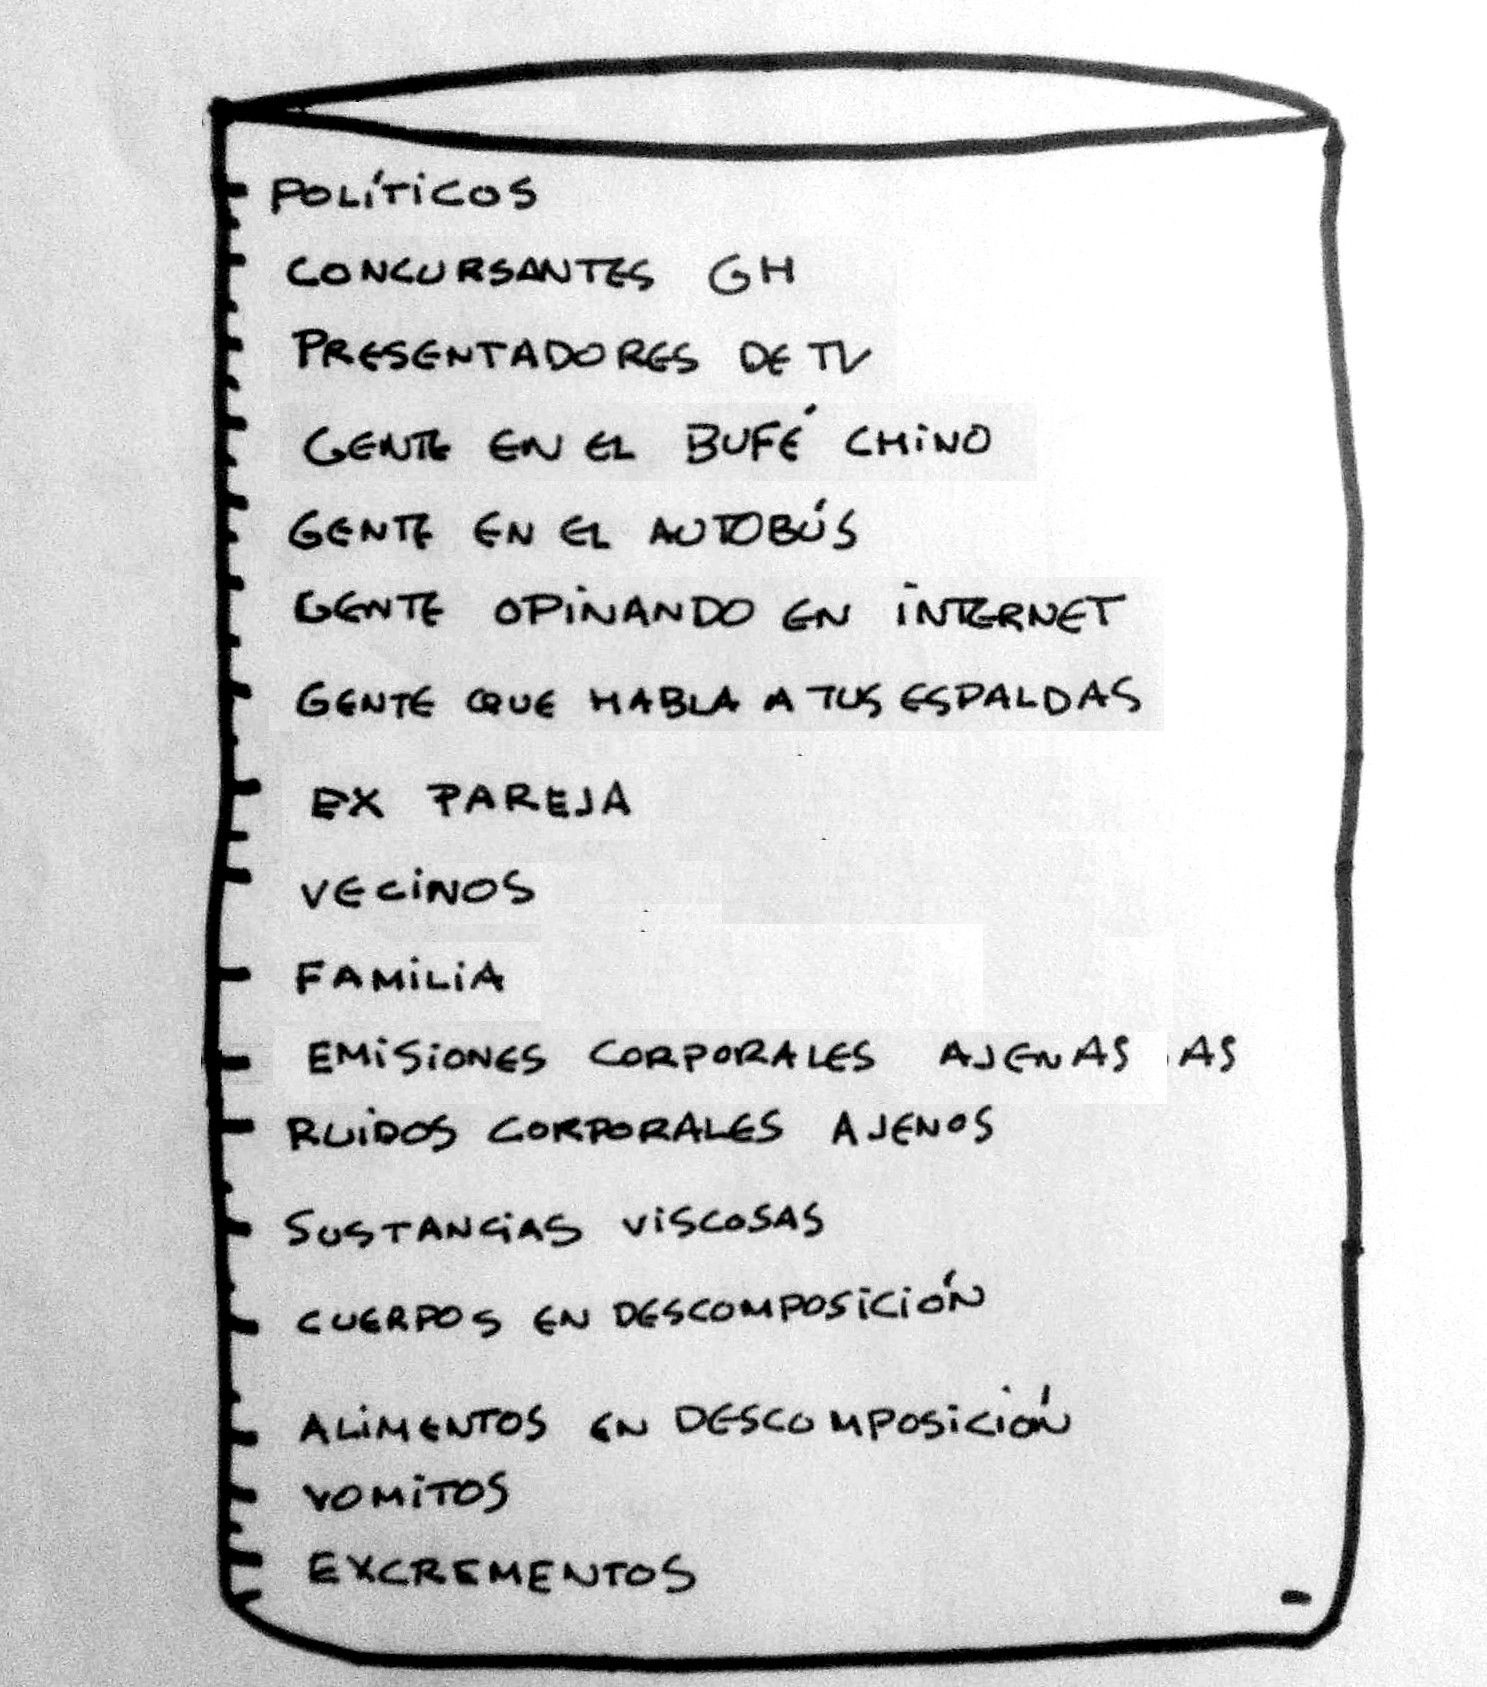 POLÍTICOS
CONCURSANTES GH
PRESENTADORES DE TV
GENTE EN EL BUFÉ CHINO
GENTE EN EL AUTOBÚS
GENTE OPINANDO EN INTERNET
GENTE QUE HABLA A TUS ESPALDAS
EX PAREJA
VECINOS
FAMILIA
EMISIONES CORPORALES AJENAS AS
RUIDOS CORPORALES AJENOS
SUSTANCIAS VISCOSAS
CUERPOS EN DESCOMPOSICIÓN
ALIMENTOS EN DESCOMPOSICIÓN
VOMITOS
EXCREMENTOS